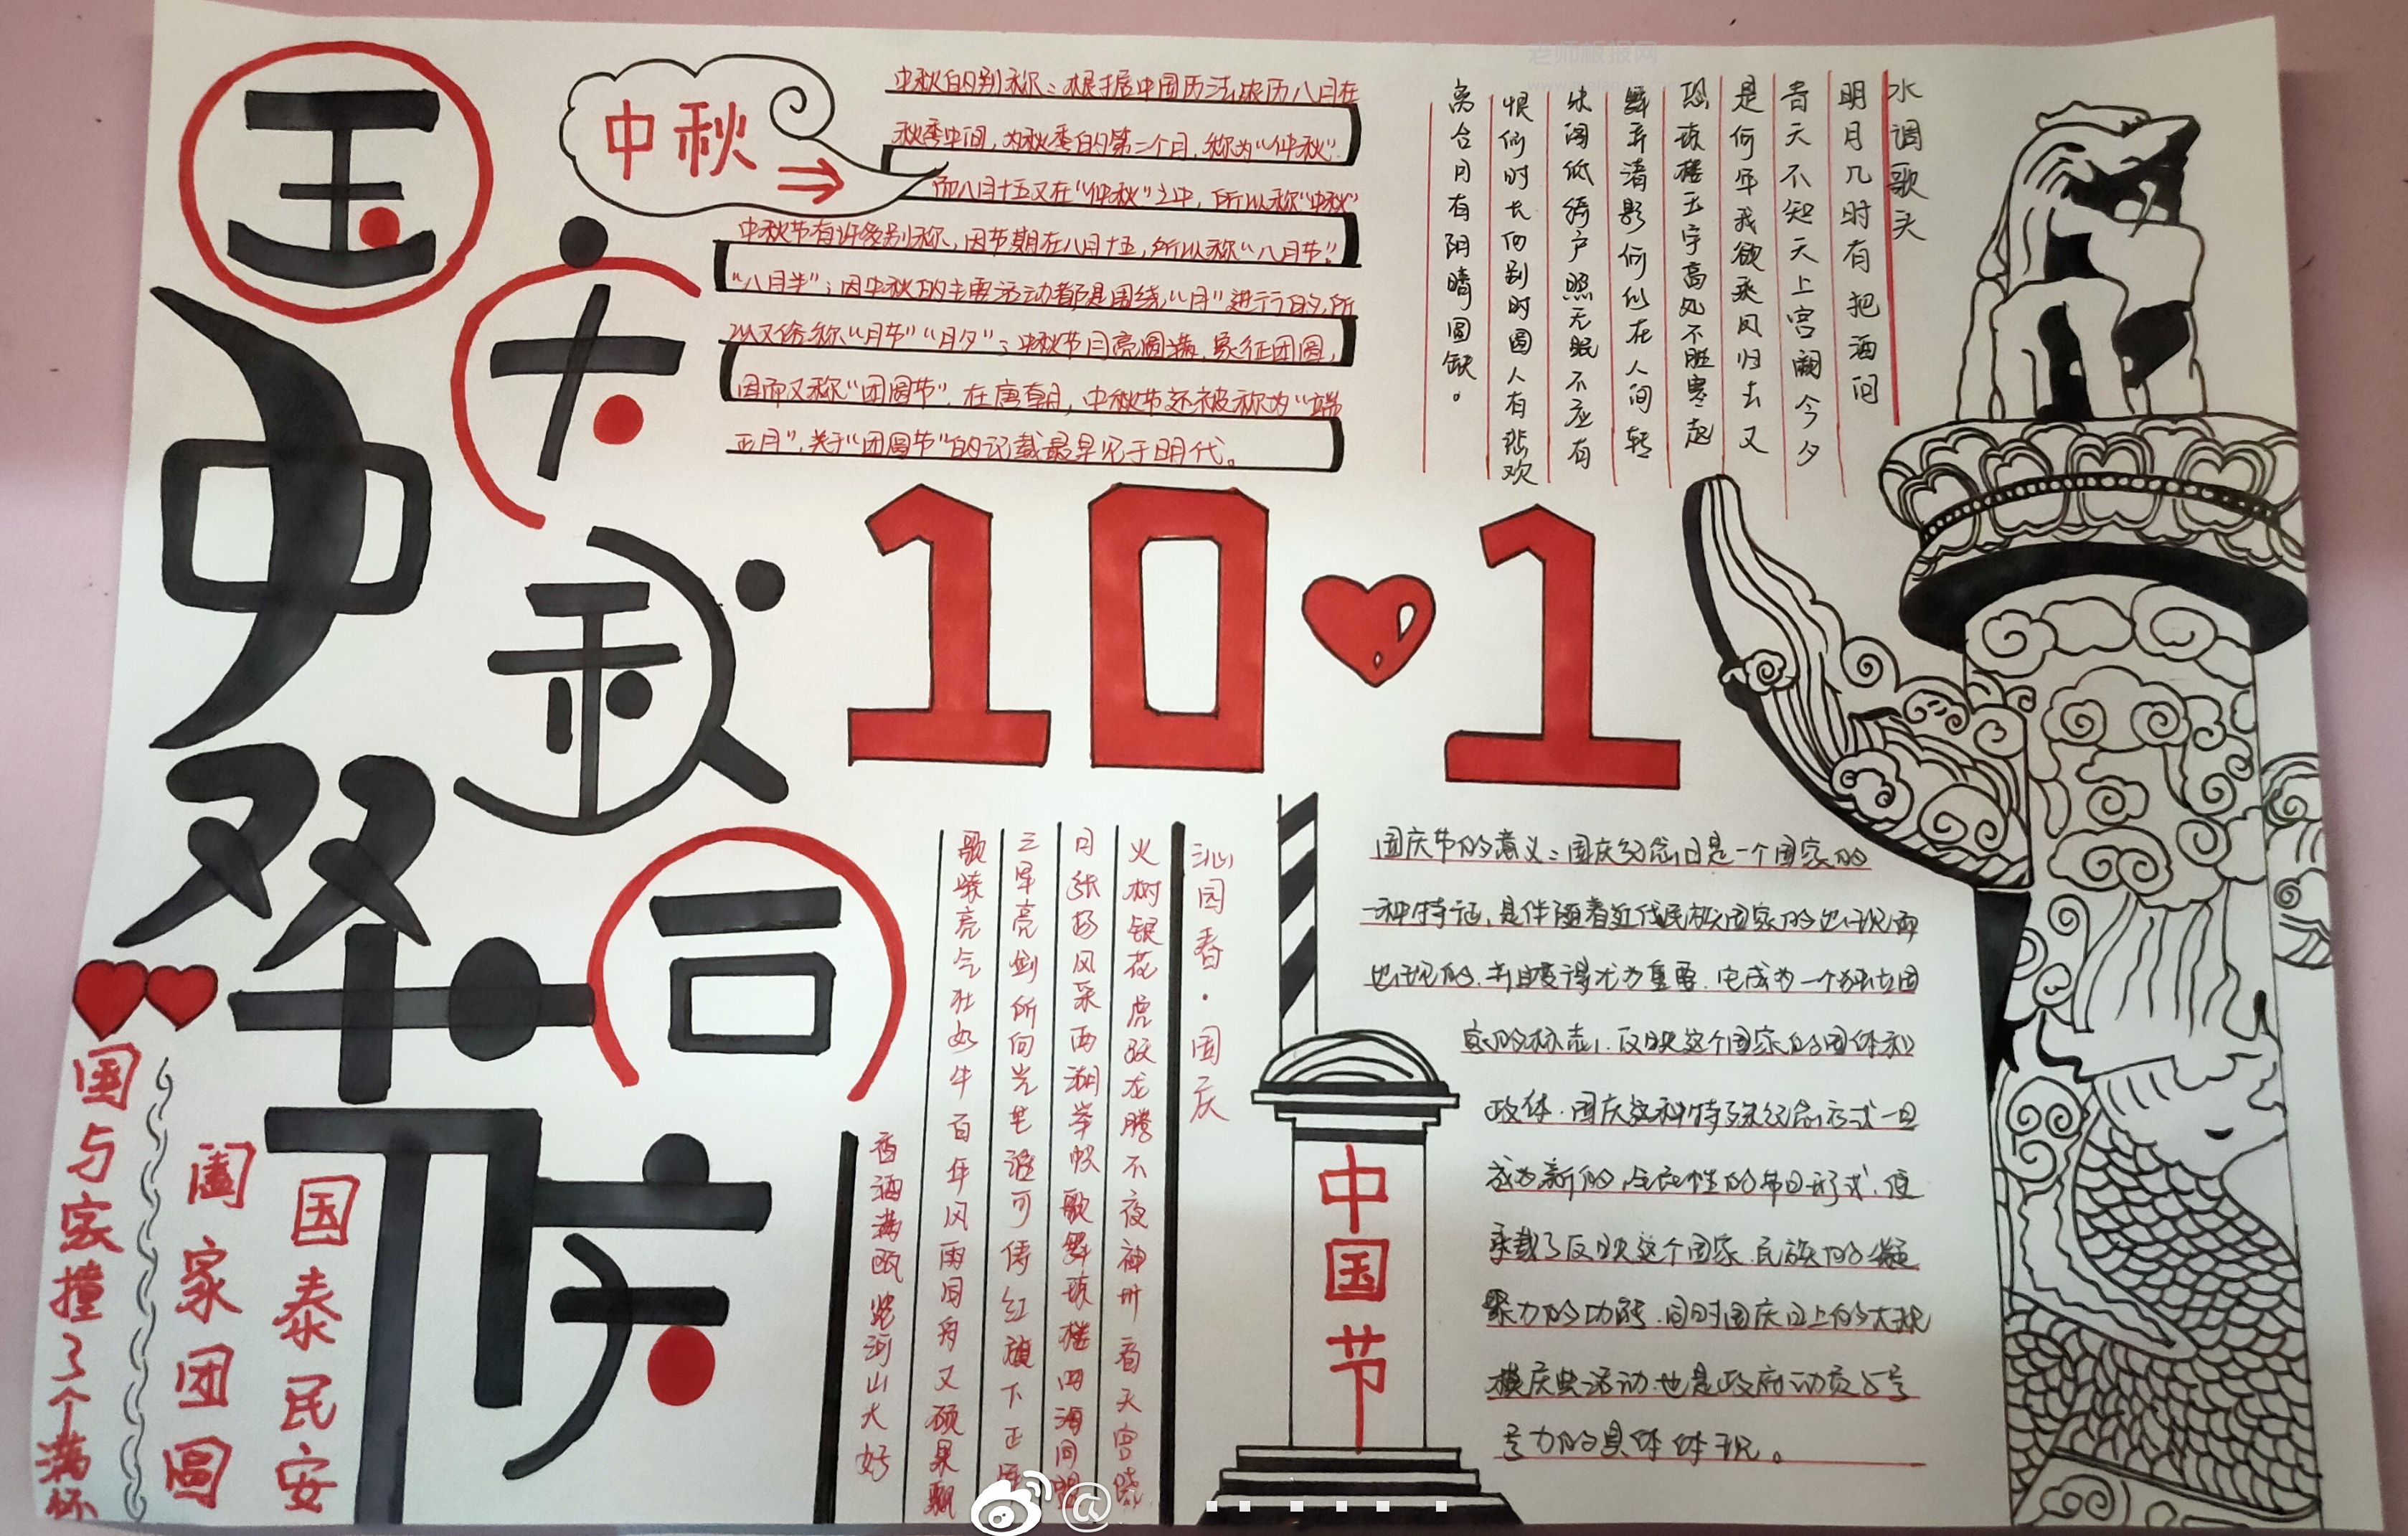 国庆
中秋
双节同庆
国与家撞了个满怀
阖家团圆
国泰民安
中秋
中秋的别称：根据中国历法农历八月在
秋季中间，为秋季的第二个月，称为“仲秋”.
而八月十五又在“仲秋”之中，所以称“中秋”
中秋节有许多别称，因节期在八月十五，所以称“八月节”.
“八月半”；因中秋的主要活动都是围绕“月”进行的，所
以又俗称“月节”“月夕”；中秋节月亮圆满，象征团圆，
因而又称“团圆节”. 在唐朝，中秋节还被称为“端
正月”，关于“团圆节”的记载最早见于明代。
水调歌头
明月几时有把酒问
青天不知天上宫阙今夕
是何年我欲乘风归去又
恐琼楼玉宇高处不胜寒起
舞弄清影何似在人间转
朱阁低绮户照无眠不应有
恨何时长向别时圆人有悲欢
离合月有阴晴圆缺。
10 1
沁园春·国庆
火树银花虎跃龙腾不夜神州看天宫
日张扬风采西湖举帜歌舞琼楼四海同
三军亮剑所向光芒谁可俦红旗下正
歌嘹亮气壮如牛百年风雨同舟又硕果飘
香酒满瓯 河山大好
中国节
国庆节的意义：国庆纪念日是一个国家的
一种特征，是伴随着近代民族国家的出现而
出现的，并且变得尤为重要. 它成为一个独立国
家的标志，反映这个国家的国体和
政体. 国庆这种特殊纪念方式一旦
成为新的，全民性的节日形式，便
承载了反映这个国家.民族的凝
聚力的功能. 同时国庆日上的大规
模庆典活动也是政府动员与号
号力的具体体现。
老师板报网
@